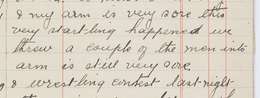 & my arm is very sore this
very startling happened we
threw a couple of the men into
arm is still very sore
9 & wrestling contest last night